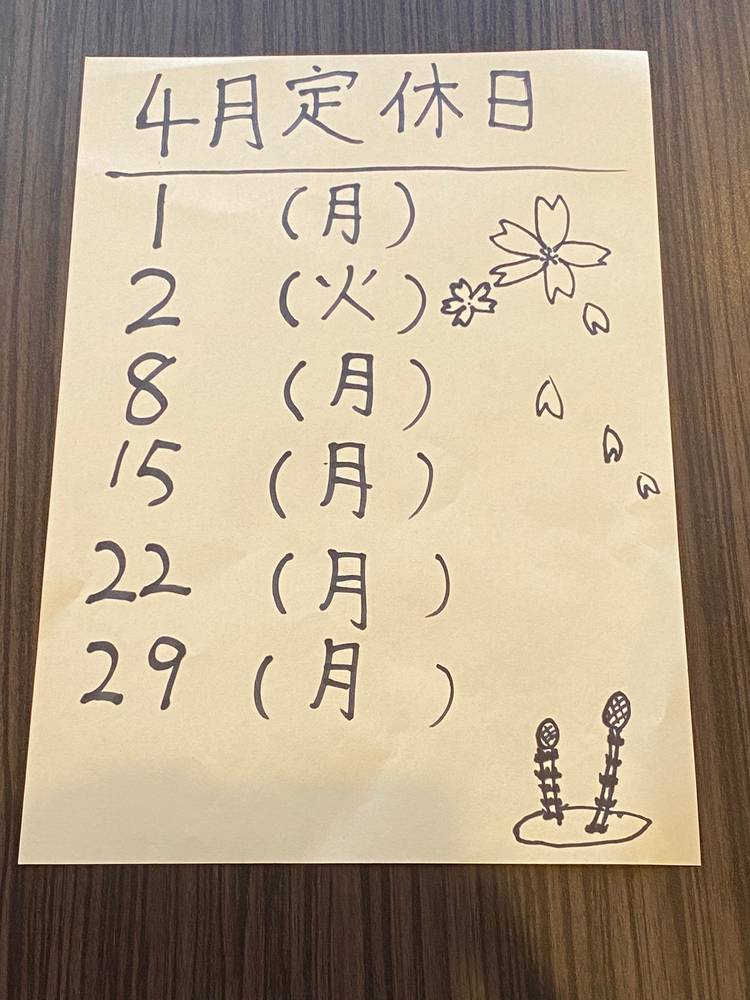 4月定休日
1 (月)
2 (火)
8 (月)
15 (月)
22 (月)
29 (月)